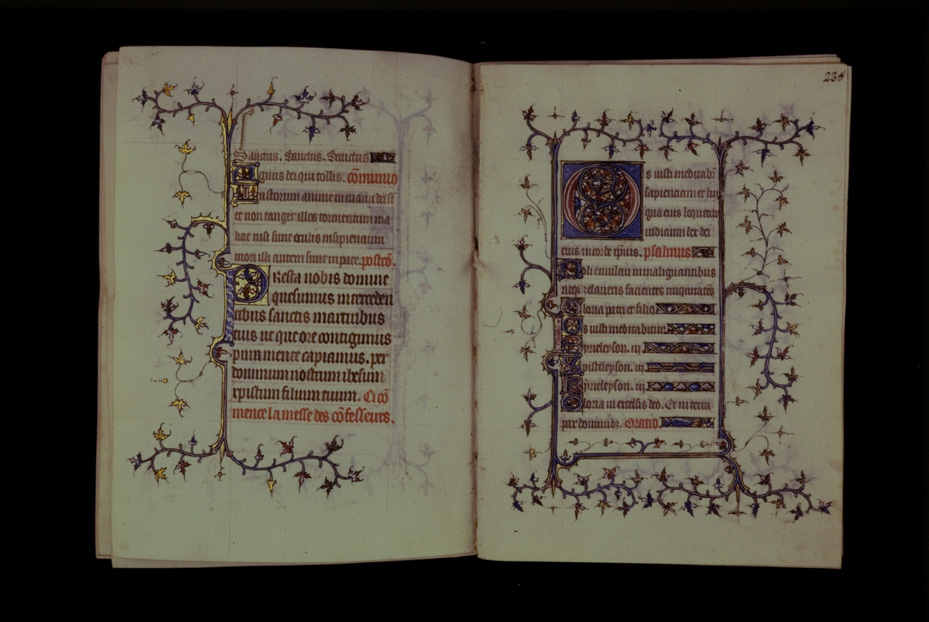 Sanctus. Sanctus. Sanctus
Agnus dei qui tollis. cōmunio
Iustorum anime in manu dei st
et non tanget illos tormentum ma
licie uisi sunt oculis insipiencium
mori illi autem sunt in pace. postcō.
Presta nobis domine
quesumus interceden
tibus sanctis martiribus
tuis ut que ore contigimus
pura mente capiamus. per
dominum nostrum ihesum
xpistum filium tuum. Ci cō
mence la messe des cōfesseurs.
238
Os iusti meditabī
sapienciam et lin
gua eius loquetur
iudicium lex dei
eius in corde ipius. psalmus
Noli emulari in malignantibus
neqȝ zelaueris facientes iniquitatē
Gloria patri et filio
Os iusti meditabitur
Kyrieleyson. iij
Xpisteleyson. iij
Kyrieleyson. iij
Gloria in excelsis deo. Et in terra
pax hominibȝ. Oratio